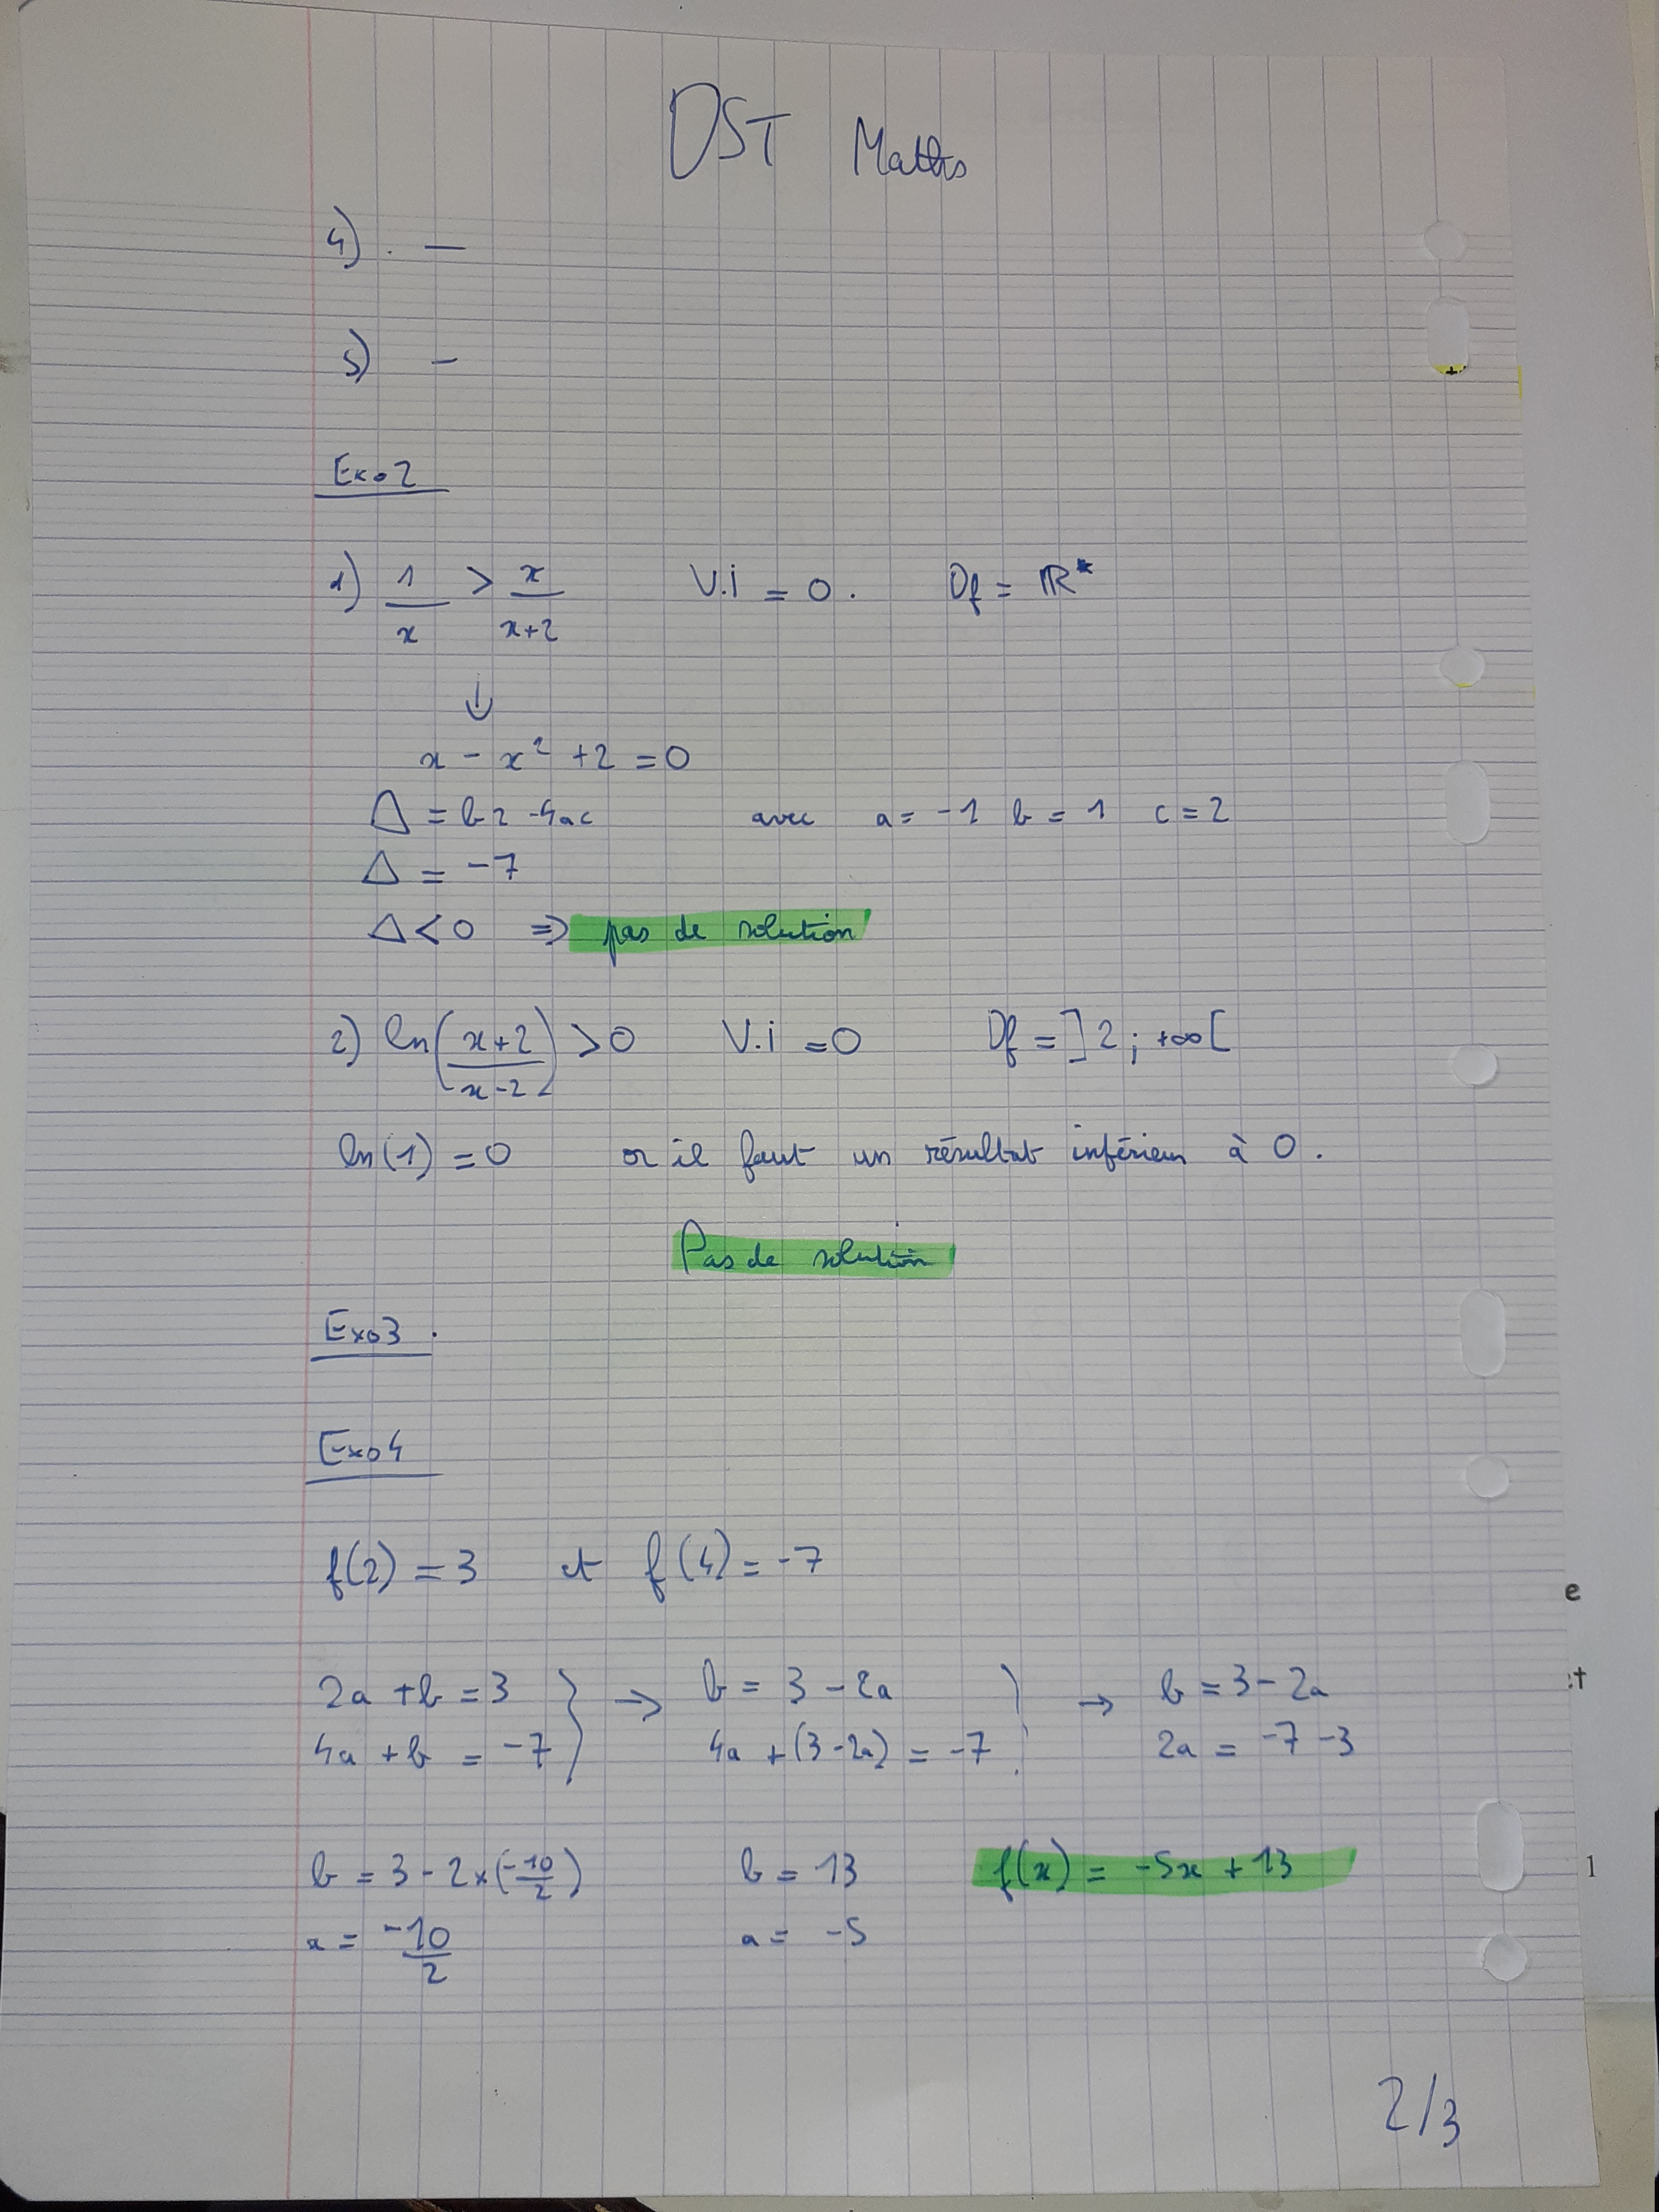 DST Maths
4) . —
5) –
Exo 2
1) 1/x < x/(x+2) V.i = 0. Df = ℝ*
↓
x - x² + 2 = 0
Δ = b2 - 4ac avec a = -1 b = 1 c = 2
Δ = -7
Δ < 0 ⇒ pas de solution
2) ln((x+2)/(x-2)) < 0 V.i = 0 Df = ]2 ; +∞[
ln(1) = 0 or il faut un résultat inférieur à 0.
Pas de solution
Exo 3
Exo 4
f(2) = 3 et f(4) = -7
2a + b = 3 → b = 3 - 2a → b = 3 - 2a
4a + b = -7 4a + (3 - 2a) = -7 2a = -7 - 3
b = 3 - 2 × (-10/2) b = 13 f(x) = -5x + 13
a = -10/2 a = -5
2/3
e
:t
1